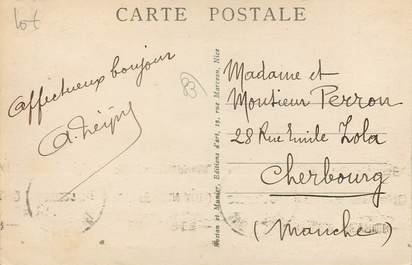 lot
CARTE POSTALE
Affectueux bonjour
83
Madame et
Monsieur Perron
28 Rue Emile Zola
Cherbourg
(Manche)
Munier, Editions d'art, 19, rue Marceau, Nice